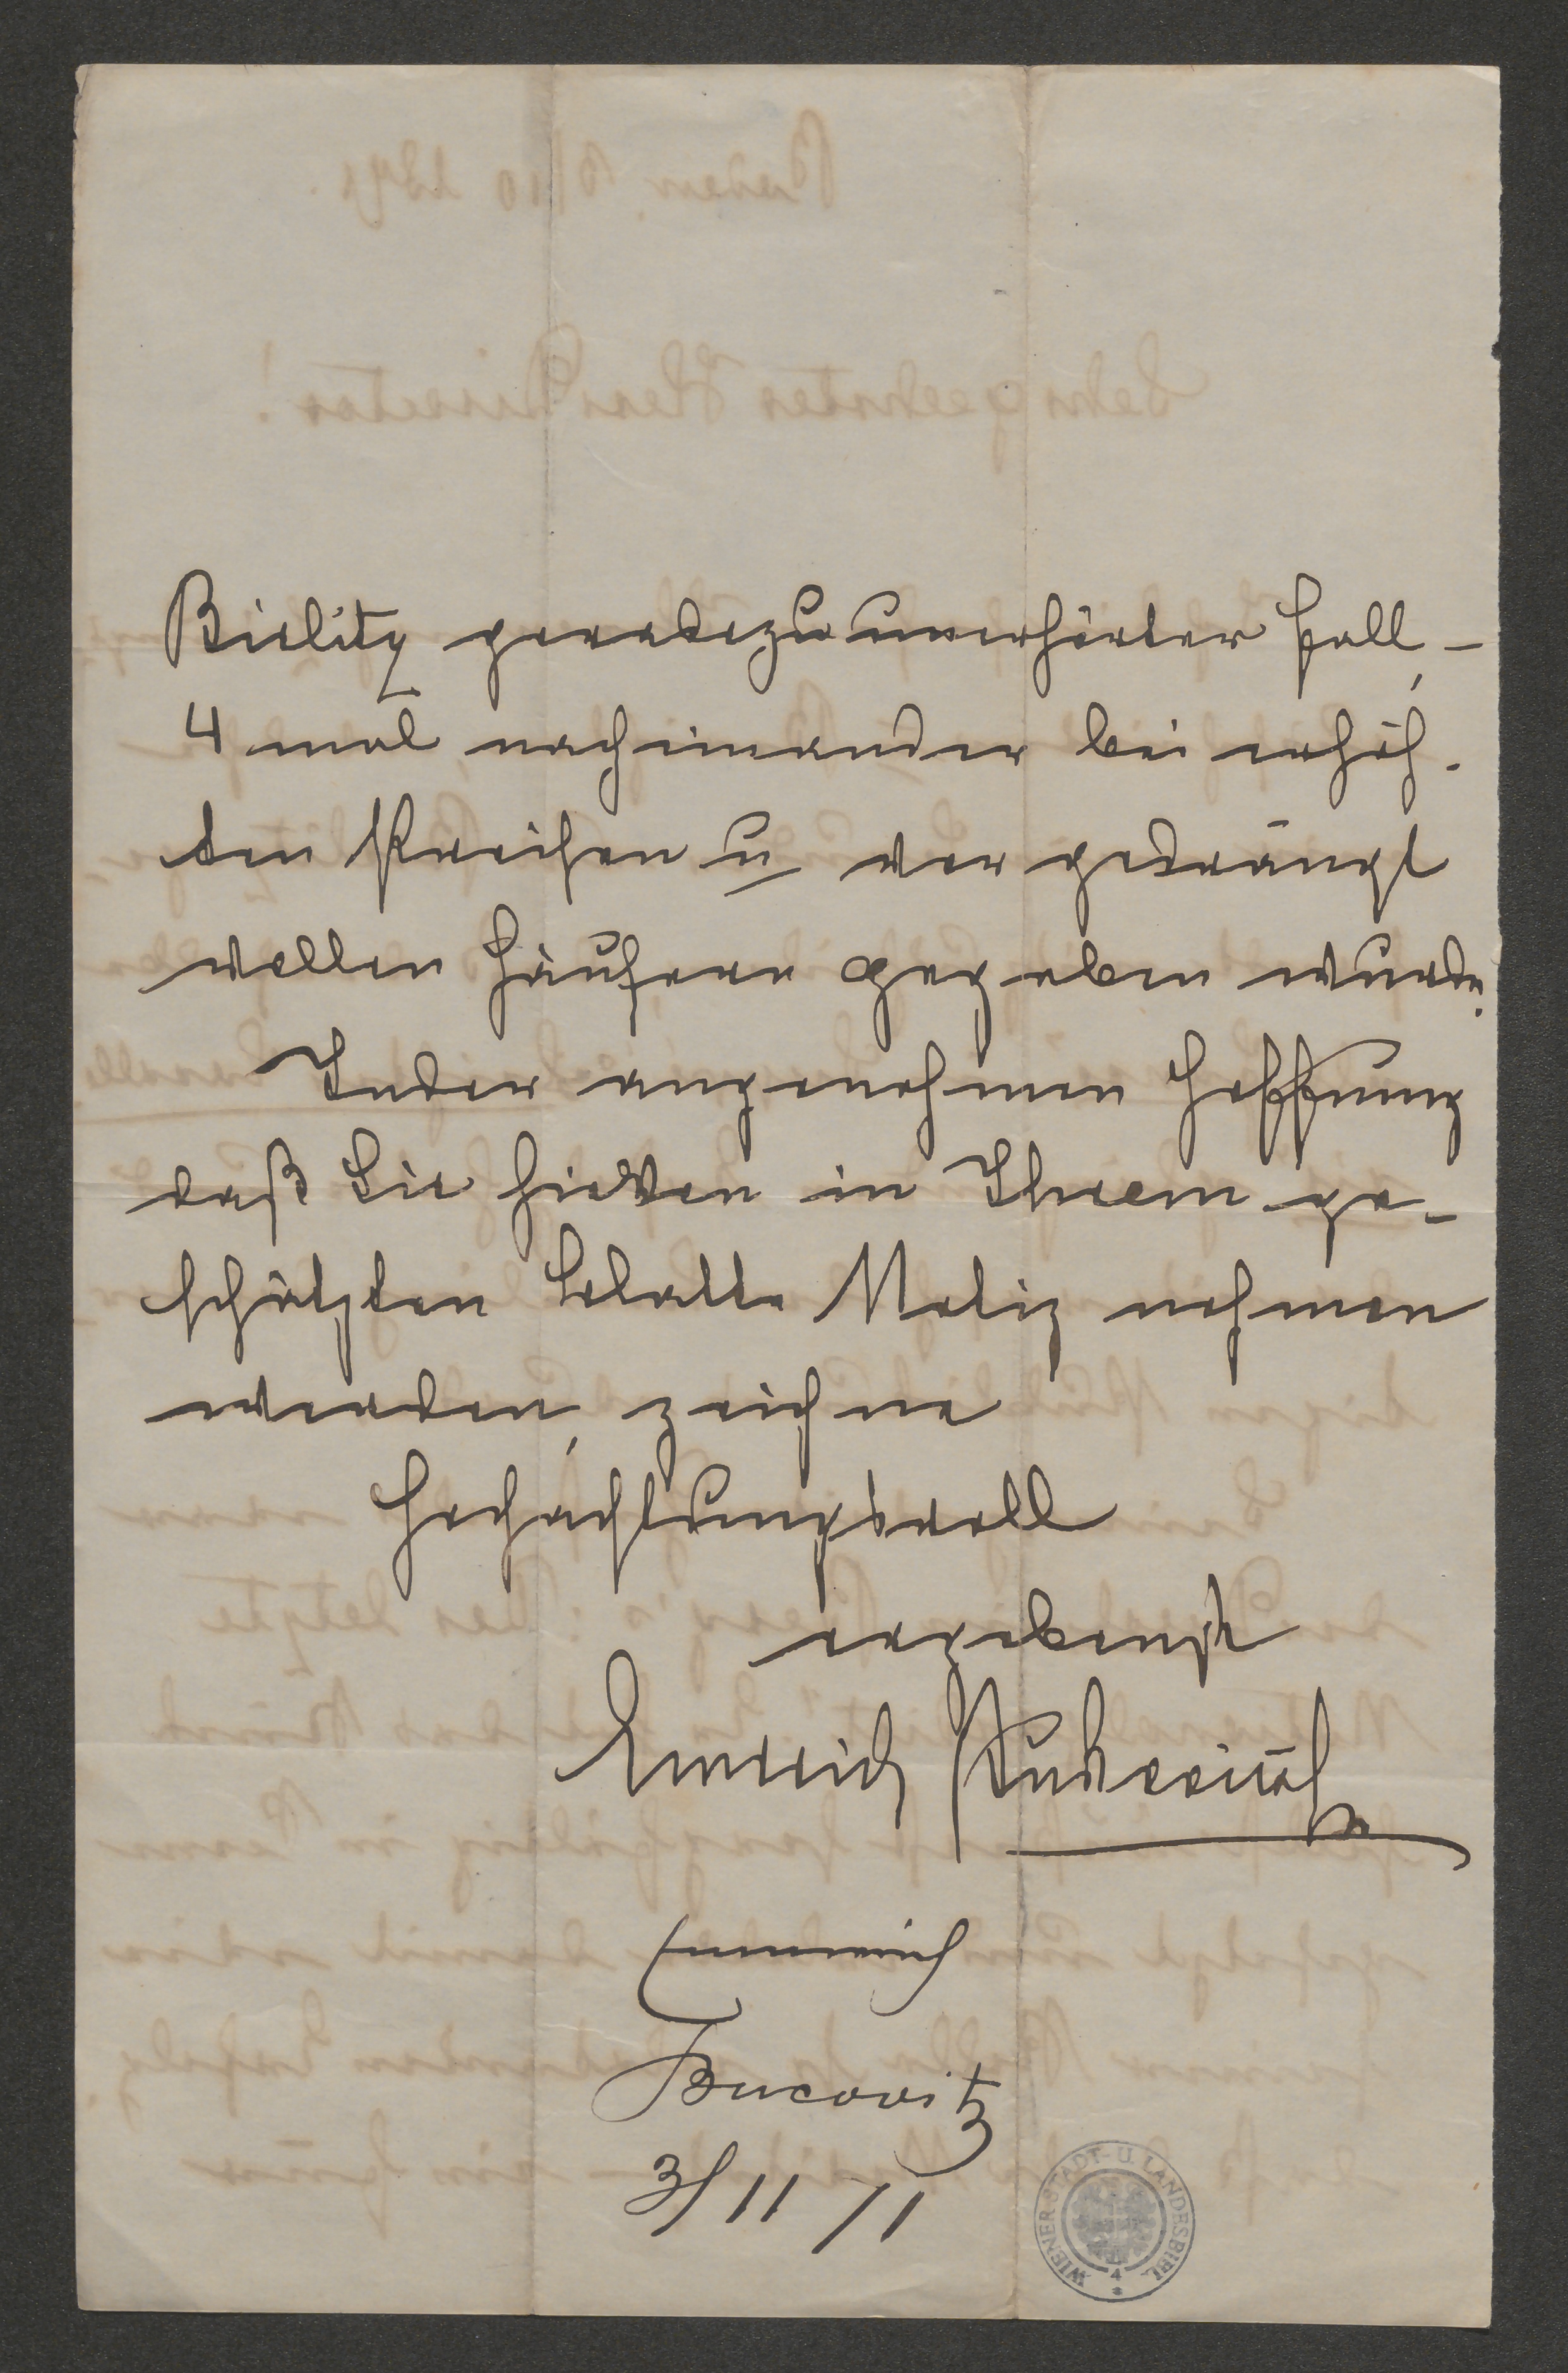 Bielitz geradezu unerhörter Fall, –
4 mal nacheinander bei erhöh-
ten Preisen u vor gedrängt
vollen Häusern gegeben wurde.
In der angenehmen Hoffnung
daß Sie hievon in Ihrem ge-
schätzten Blatte Notiz nehmen
werden, zeichne
Hochachtungsvoll
ergebenst
Emerich
Emmerich
Bucovitz
3/11 71
WIENER STADT- U. LANDESBIBL.
4